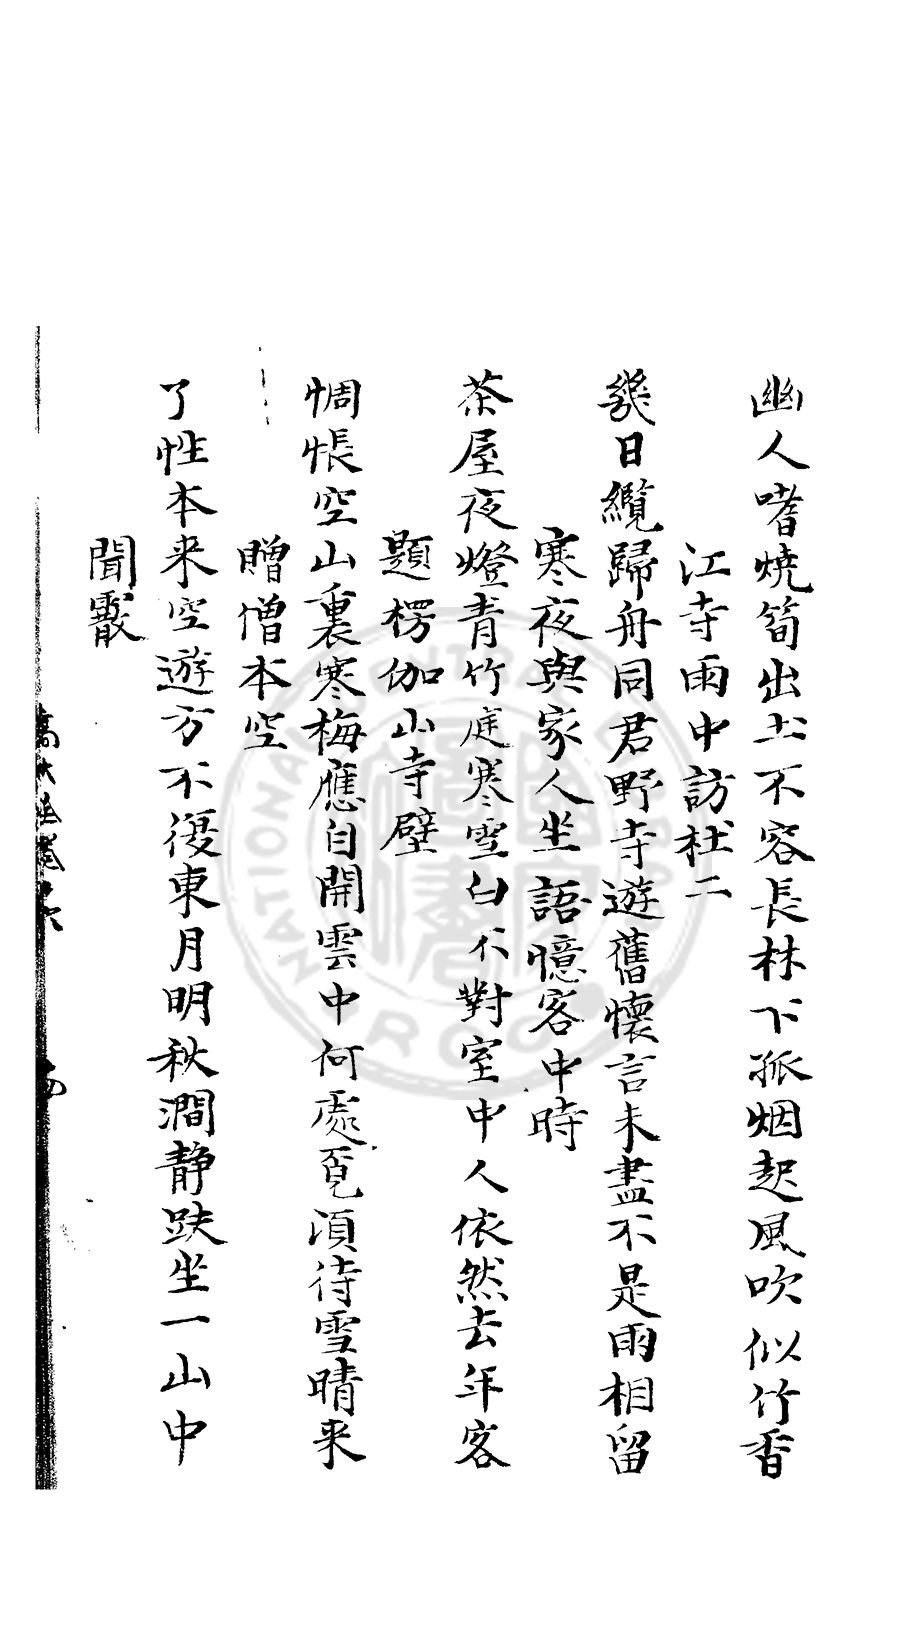 幽人嗜燒筍出土不容長林下孤烟起風吹似竹香
江寺雨中訪杜二
幾日纜歸舟同君野寺遊舊懷言未盡不是雨相留
寒夜與家人坐語憶客中時
茶屋夜燈青竹庭寒雪白不對室中人依然去年客
題楞伽山寺壁
惆悵空山裏寒梅應自開雲中何處覓湏待雪晴来
贈僧本空
了性本来空遊方不復東月明秋澗静趺坐一山中
聞霰
NATIONAL CENTRAL LIBRARY